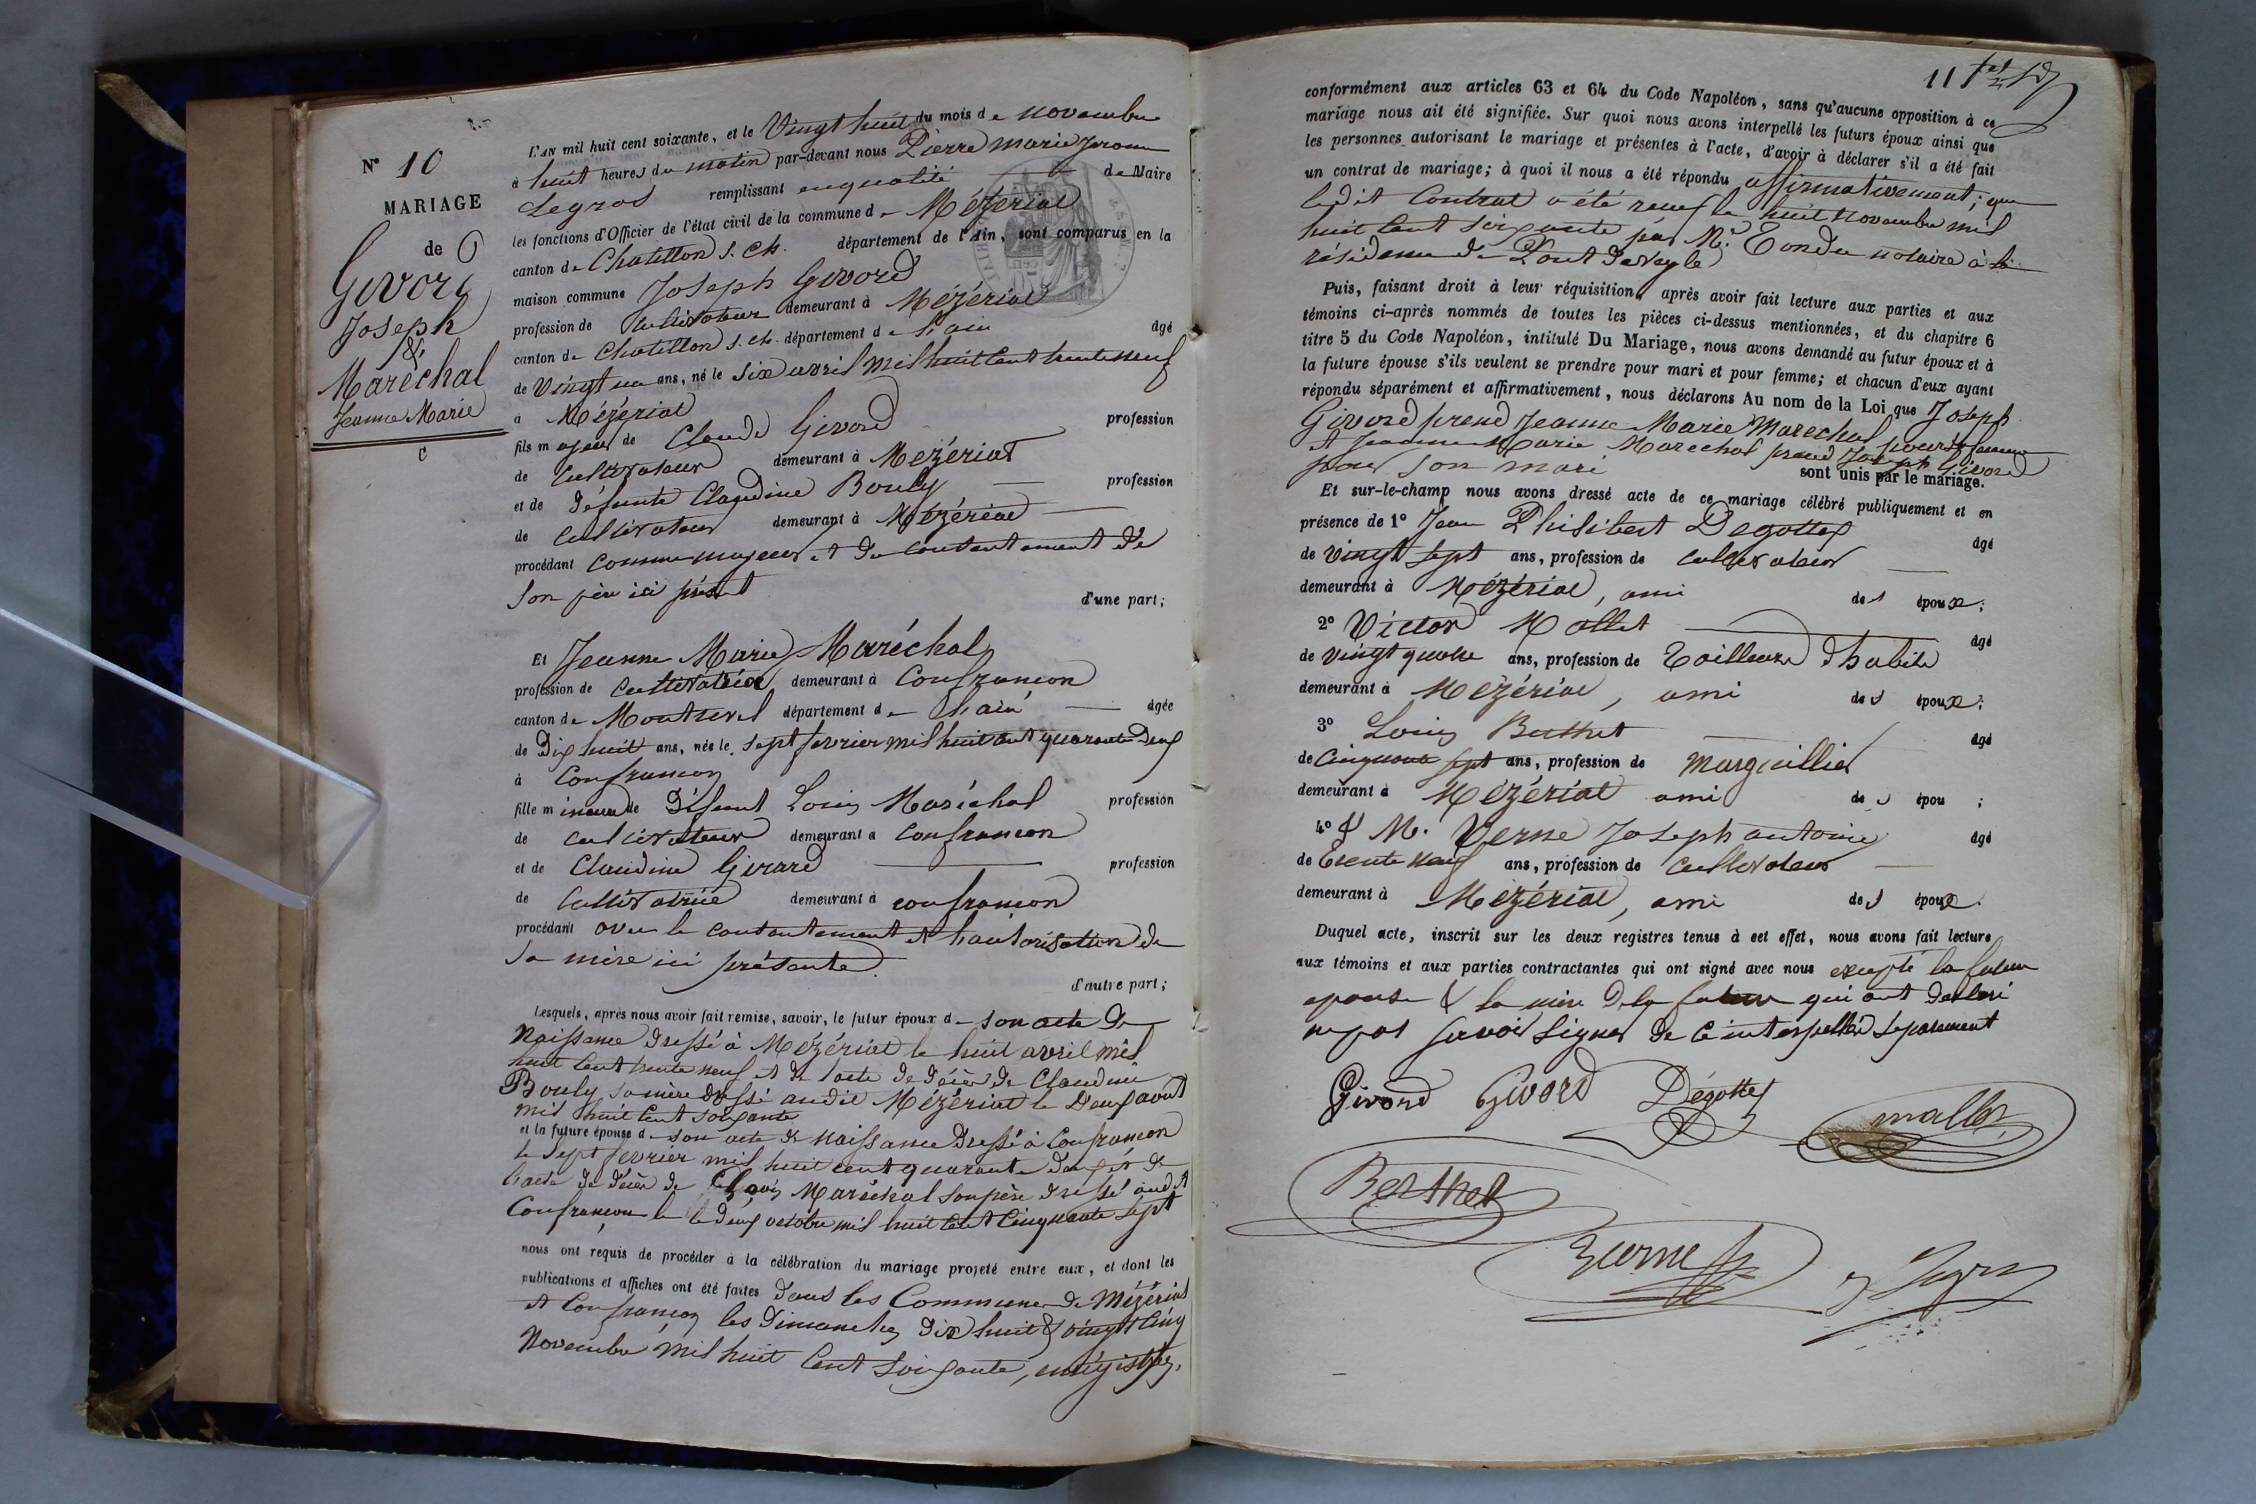 N° 10
MARIAGE
de
Givord
Joseph
&
Maréchal
Jeanne Marie
L'AN mil huit cent soixante, et le Vingt huit du mois de novembre
à huit heures du matin par-devant nous Pierre Marie Jerome
Legros remplissant en qualité de Maire
les fonctions d'Officier de l'état civil de la commune de Mézériat
canton de Chatillon s. Ch. département de l'Ain, sont comparus en la
maison commune Joseph Givord
profession de Cultivateur demeurant à Mézériat
canton de Chatillon s. ch. département de l'ain âgé
de Vingt un ans, né le six avril mil huit cent trente neuf
à Mézériat
fils majeur de Claude Givord profession
de Cultivateur demeurant à Mézériat
et de défunte Claudine Bouly profession
de Cultivateur demeurant à Mézériat
procédant comme majeur et du contentement de
son père ici présent
d'une part;
Et Jeanne Marie Maréchal
profession de Cultivatrice demeurant à Confrançon
canton de Montrevel département de l'ain âgée
de Dix huit ans, née le sept fevrier mil huit cent quarante deux
à Confrançon
fille mineure de Défunt Louis Maréchal profession
de cultivateur demeurant à confrancon
et de Claudine Girard profession
de Cultivatrice demeurant à confrancon
procédant avec le contentement et l'autorisation de
sa mère ici présente
d'autre part;
Lesquels, après nous avoir fait remise, savoir, le futur époux de son acte de
Naissance dressé à Mézériat le huit avril mil
huit cent trente neuf et de l'acte de décès de Claudine
Bouly sa mère dressé audit Mézériat le deux aout
mil huit cent soixante
et la future épouse de son acte de naissance dressé à Confrancon
le sept fevrier mil huit cent quarante deux et de
l'acte de décès de Louis Maréchal son père dressé audit
Confrancon le deux octobre mil huit cent cinquante sept
nous ont requis de procéder à la célébration du mariage projeté entre eux, et dont les
publications et affiches ont été faites dans les Communes de Mézériat
et Confrançon les dimanches dix huit & vingt cinq
Novembre mil huit cent soixante, enrégistrées,
11
conformément aux articles 63 et 64 du Code Napoléon, sans qu'aucune opposition à ce
mariage nous ait été signifiée. Sur quoi nous avons interpellé les futurs époux ainsi que
les personnes autorisant le mariage et présentes à l'acte, d'avoir à déclarer s'il a été fait
un contrat de mariage; à quoi il nous a été répondu affirmativement; que
ledit Contrat a été reçu le huit Novembre mil
huit cent soixante par Me Tondu notaire à la
résidence de Pont de Veyle
Puis, faisant droit à leur réquisition, après avoir fait lecture aux parties et aux
témoins ci-après nommés de toutes les pièces ci-dessus mentionnées, et du chapitre 6
titre 5 du Code Napoléon, intitulé Du Mariage, nous avons demandé au futur époux et à
la future épouse s'ils veulent se prendre pour mari et pour femme; et chacun d'eux ayant
répondu séparément et affirmativement, nous déclarons Au nom de la Loi que Joseph
Givord prend Jeanne Marie Marechal pour sa femme
et Jeanne Marie Marechal prend Joseph Givord
pour son mari sont unis par le mariage.
Et sur-le-champ nous avons dressé acte de ce mariage célébré publiquement et en
présence de 1° Jean Philibert Degottex âgé
de vingt sept ans, profession de cultivateur
demeurant à Mézériat, ami des époux;
2° Victor Mallet âgé
de vingt quatre ans, profession de Tailleure d'habits
demeurant à Mézériat, ami des époux;
3° Louis Berthet âgé
de Cinquante sept ans, profession de marguillier
demeurant à Mézériat ami des épou ;
4° & M. Verne Joseph antoine âgé
de Trente neuf ans, profession de Cultivateur
demeurant à Mézériat, ami des époux.
Duquel acte, inscrit sur les deux registres tenus à cet effet, nous avons fait lecture
aux témoins et aux parties contractantes qui ont signé avec nous excepté la future
epouse & la mère de la future qui ont declaré
ne pas savoir signer de ce interpellés separement
Givord Givord Dégottex
mallet
Berthet
Verne